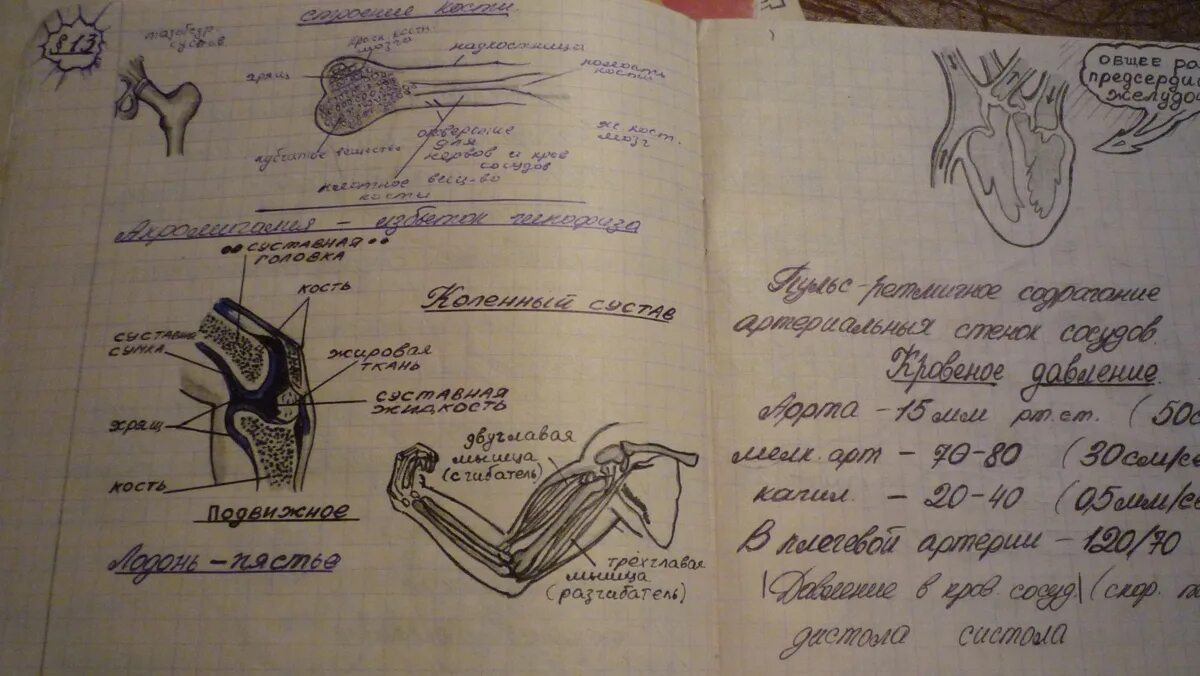 §13
тазобедр.
сустав
строение кости.
красн. кост.
мозга
надкостница
полость
кости
хрящ
губчатое вещество
отверстие
для
нервов и кров
сосудов
ж. кост.
мозг
плотное вещ-во
кости
Акромигалия – избыток гипофиза
суставная
головка
кость
Коленный сустав
суставн
сумка
жировая
ткань
суставная
жидкость
хрящ
кость
Подвижное
Ладонь – пястье
двуглавая
мышца
(сгибатель)
трёхглавая
мышца
(разгибатель)
общее ра
предсерди
желудо
Пульс – ретмичное содрагание
артериальных стенок сосудов.
Кровеное давление.
Аорта – 15 мм рт. ст. (50с
мелк. арт – 70-80 (30 см/се
капил. – 20-40 (0,5 мм/се
В плечевой артерии – 120/70
Давление в кров. сосуд (скор.
дистола систола